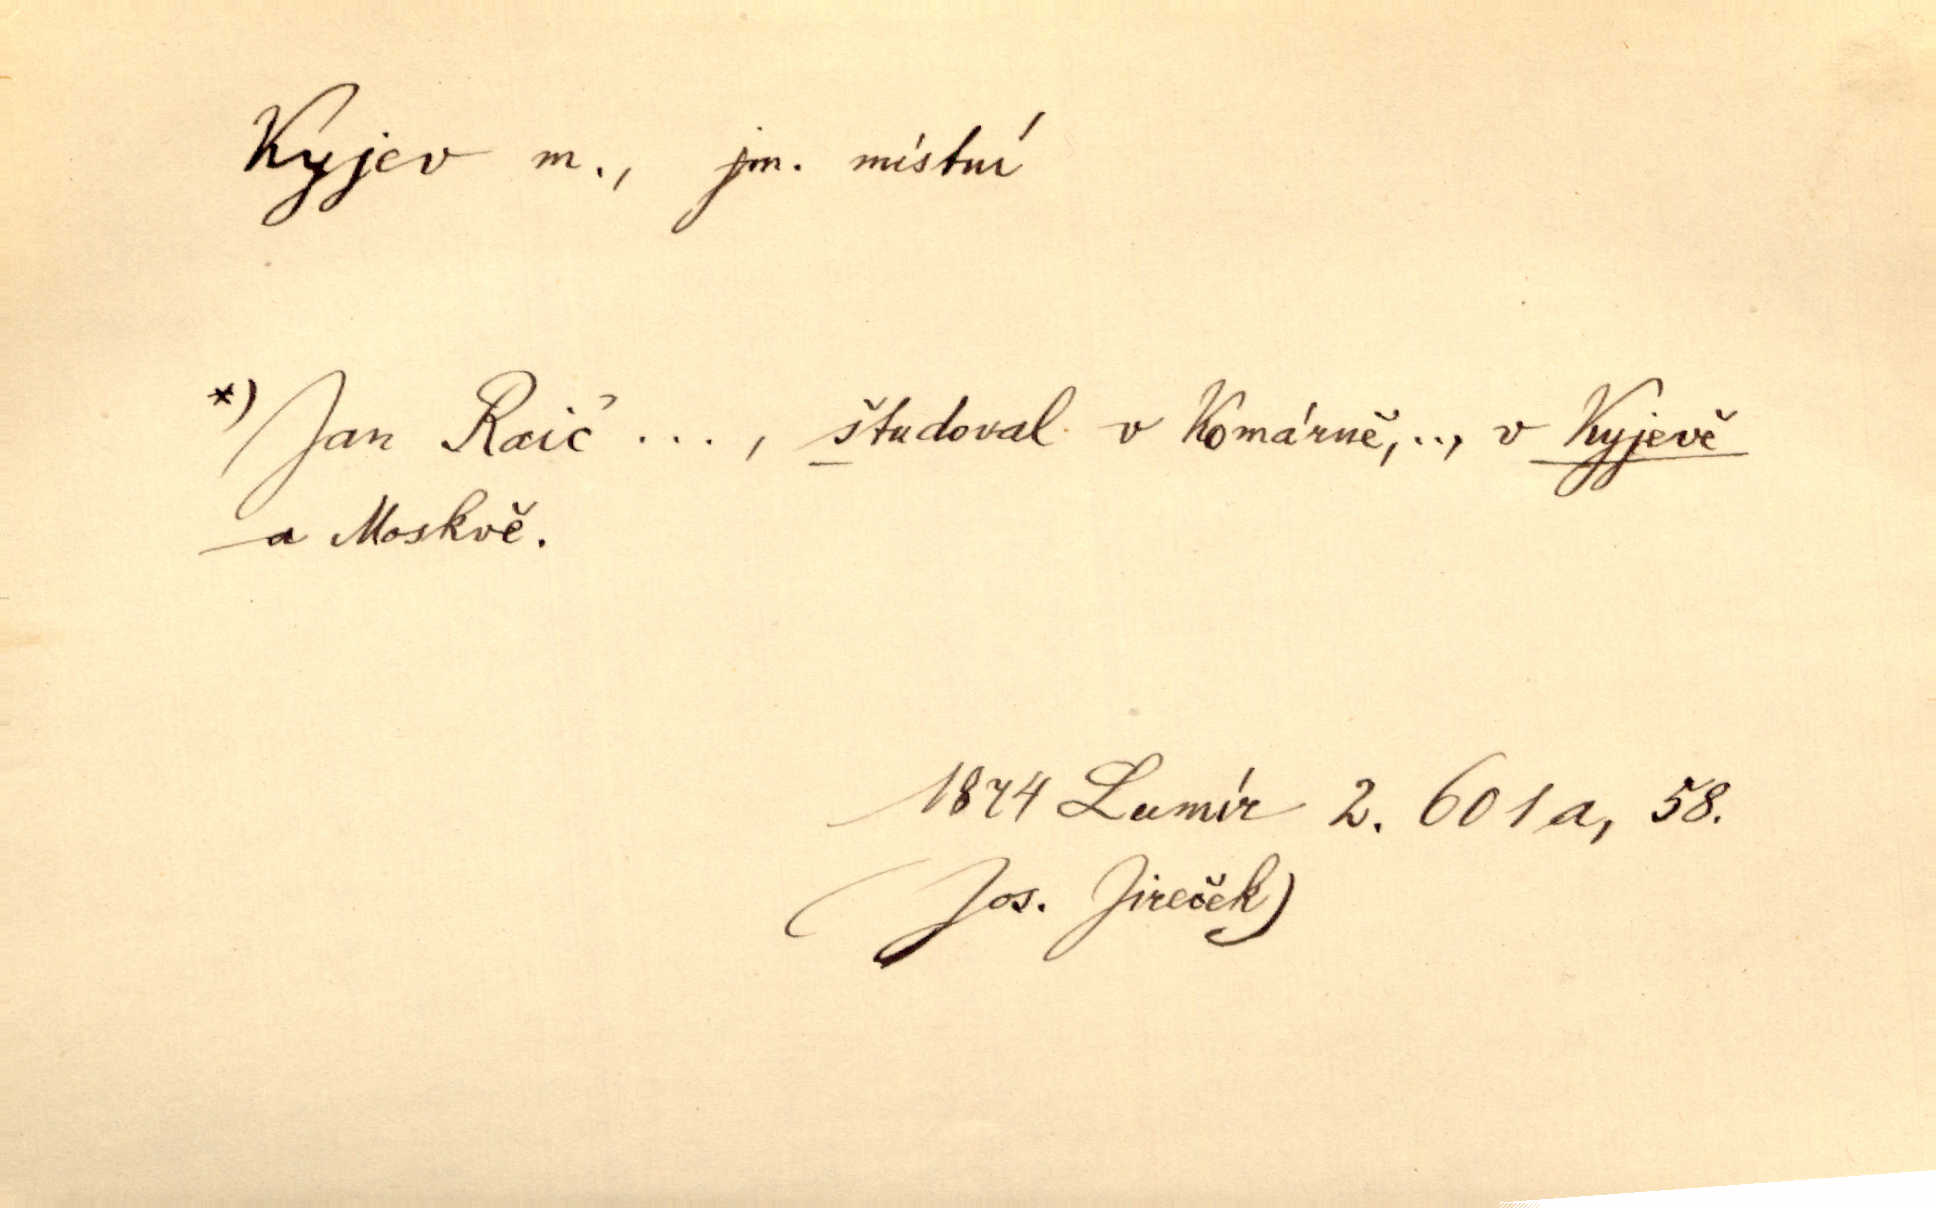 Kyjev m., jm. místní
*) Jan Raič ..., študoval v Komárně,.., v Kyjevě
a Moskvě.
1874 Lumír 2. 601a, 58.
(Jos. Jireček)